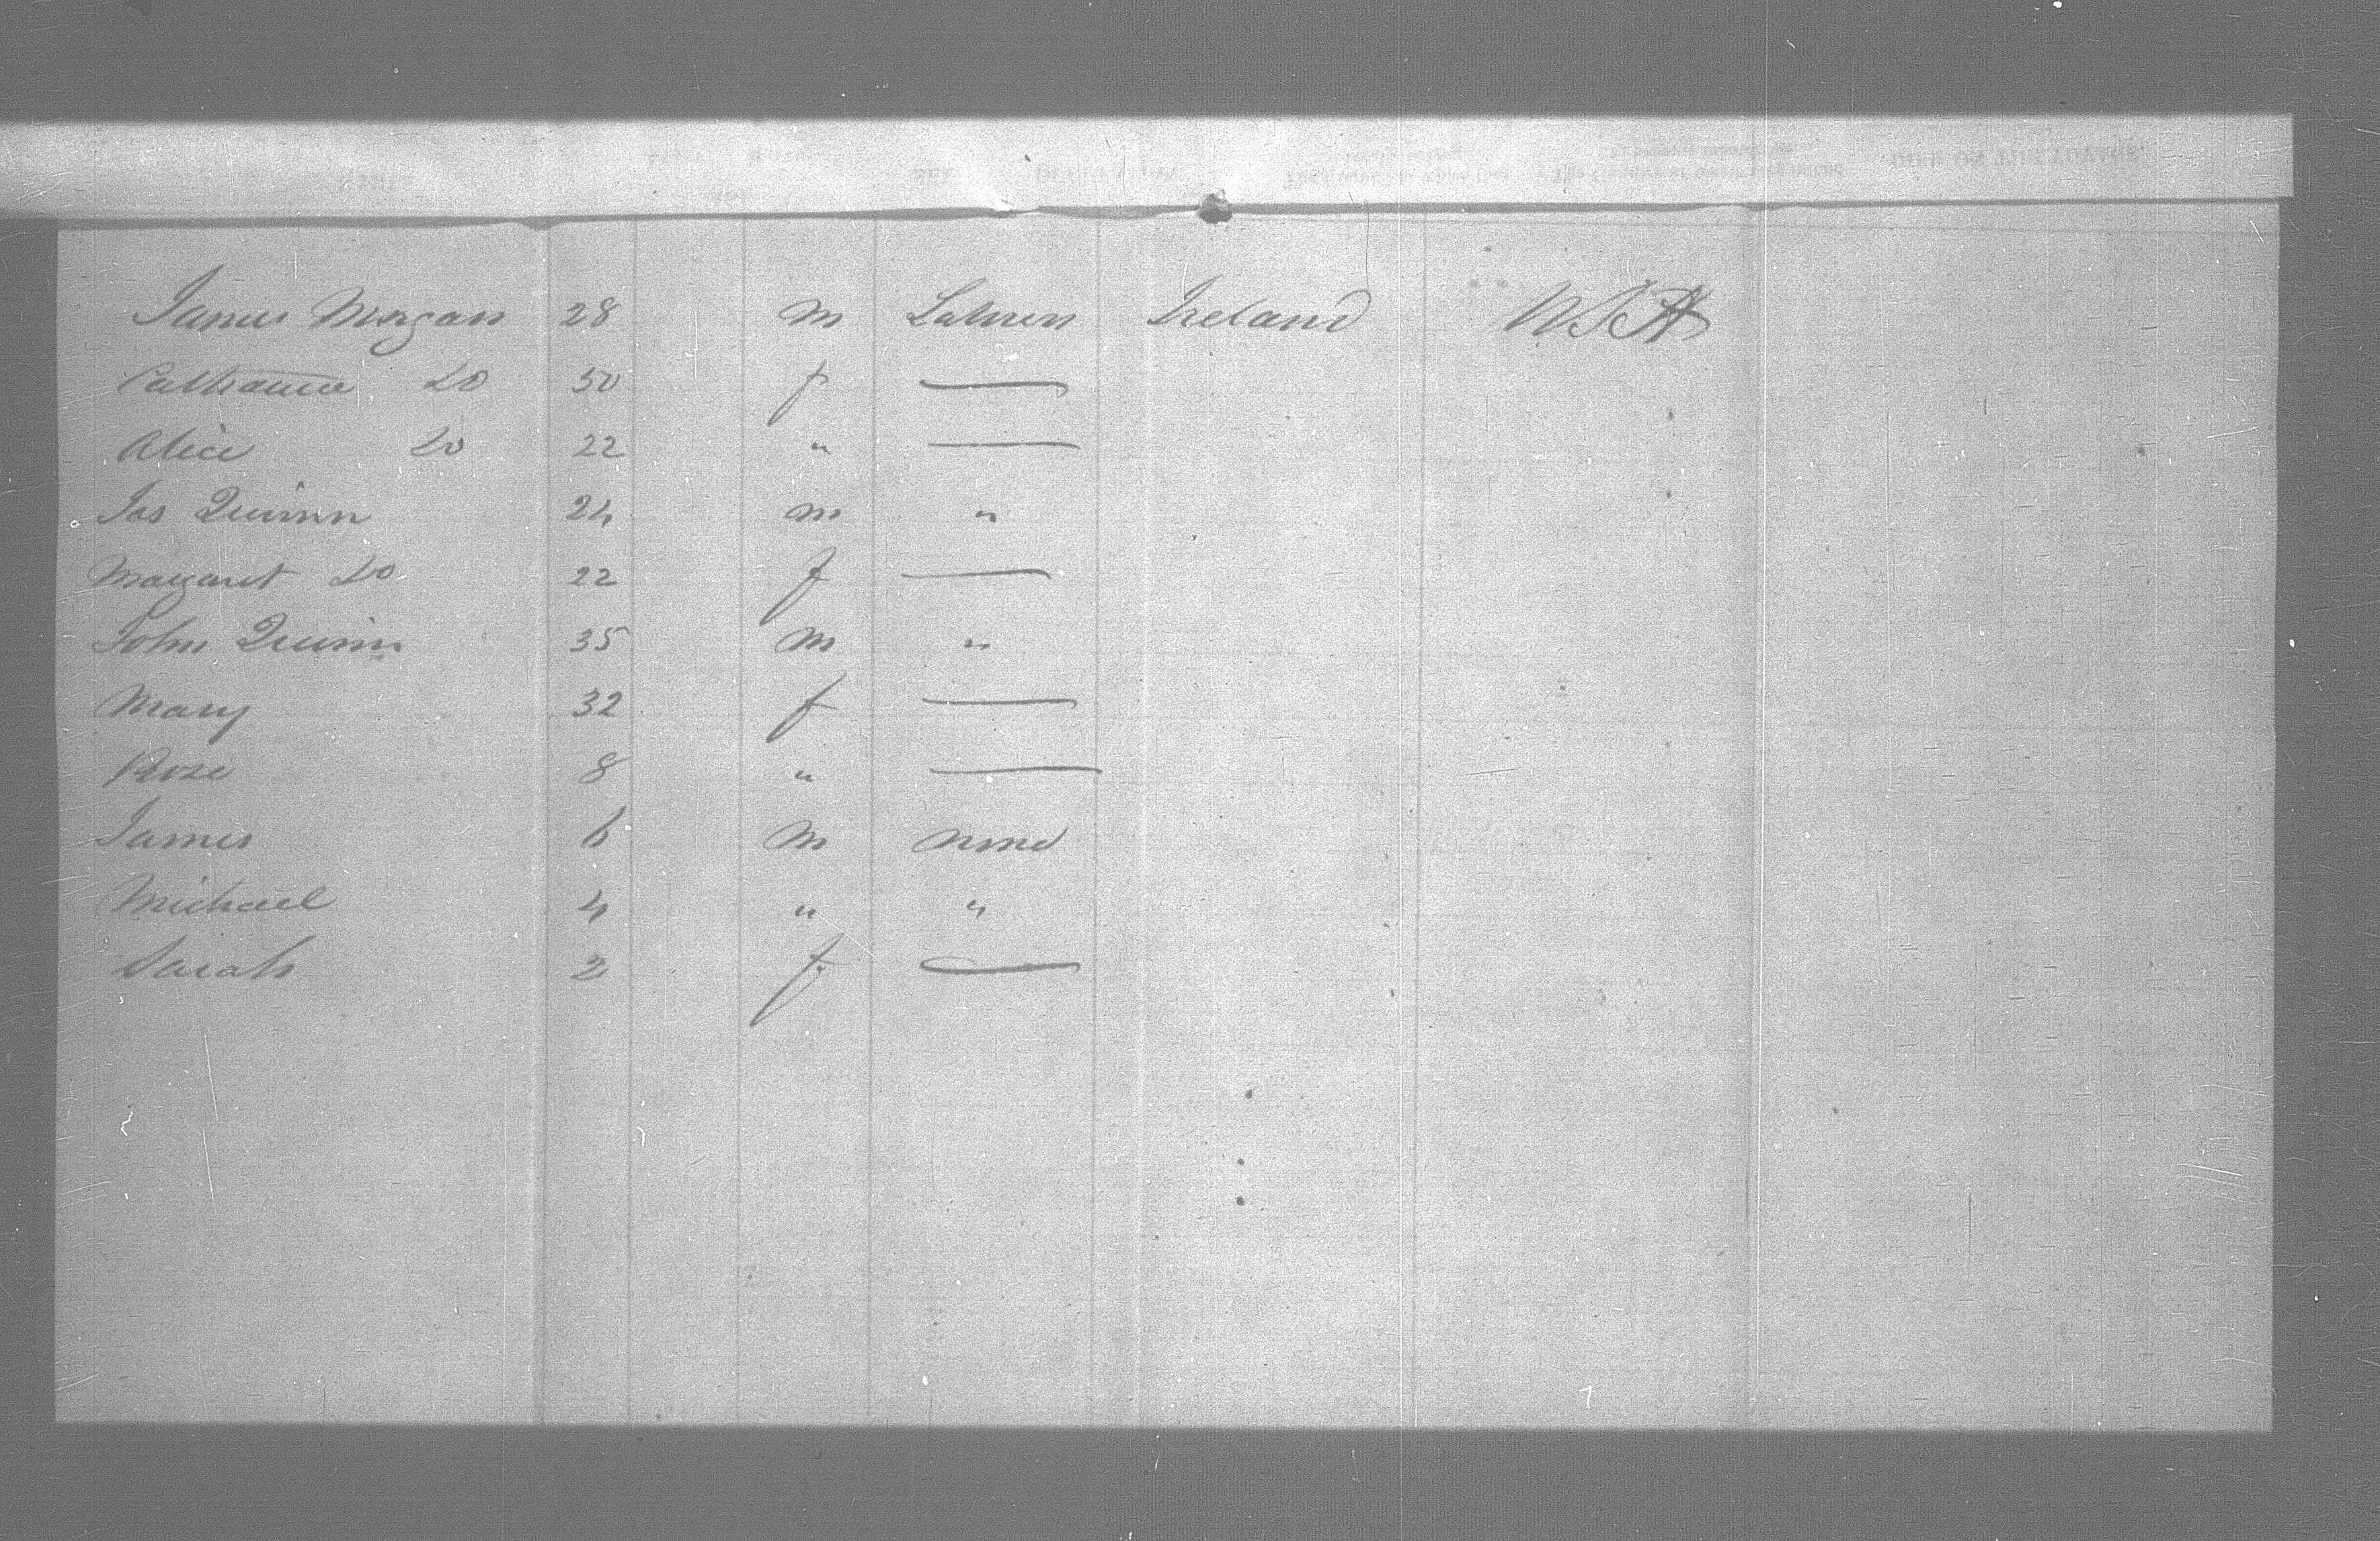 James Morgan 28 m Labourer Ireland
Catharine Do 50 f
Alice Do 22 "
Jas Quinn 24 m "
Margaret Do 22 f
John Quinn 35 m "
Mary 32 f
Rose 8 "
James 6 m none
Michael 4 " "
Sarah 2 f